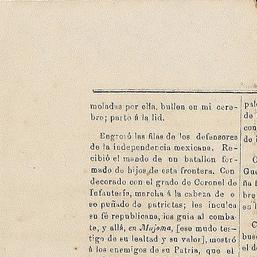 moladas por ella, bullen en mi cere-
bro; parto á la lid.
Engrosó las filas de los defensores
de la independencia mexicana. Re-
cibió el mando de un batallon for-
mado de hijos de esta frontera. Con
decorado con el grado de Coronel de
Infantería, marcha á la cabeza de o
se puñado de patriotas; les inculca
su fé republicana, los guia al comba-
te, y allá, en Majoma, [ese mudo tes-
tigo de su lealtad y su valor], mostró
á los enemigos de su Patria, que el